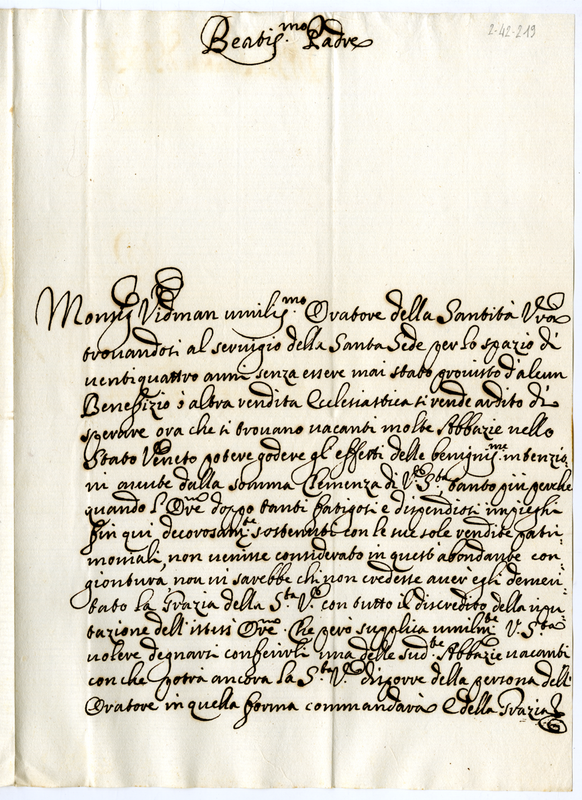 2-42-219
Beatis.mo Padre
Monsig.r Vidman umilis.mo Oratore della Santità V.ra
trovandosi al servigio della Santa Sede per lo spazio di
ventiquattro anni senza essere mai stato provisto d'alcun
Benefizio ò altra rendita Ecclesiastica si rende ardito di
sperare ora che si trovano vacanti molte Abbazie nello
Stato Veneto potere godere gl'effetti delle benignis.me intenzio:
ni avute dalla somma Clemenza di V. S.tà tanto più perche
quando l'Ore doppo tanti fatigosi e dispendiosi impieghi
fin qui decorosam.te sostenuti con le sue sole rendite patri:
moniali, non venisse considerato in questa abondante con:
giontura non vi sarebbe chi non credesse aver egli demeri:
tato la Grazia della S.tà V. con tutto il discredito della ripu:
tazione dell'istess' Ore. Che però supplica umilm.te V. S.tà
volere degnarsi conferirli una delle sud.te Abbazie vacanti
con che potrà ancora la S.tà V.ra disporre della persona dell'
Oratore in quella forma commandarà e della Grazia &